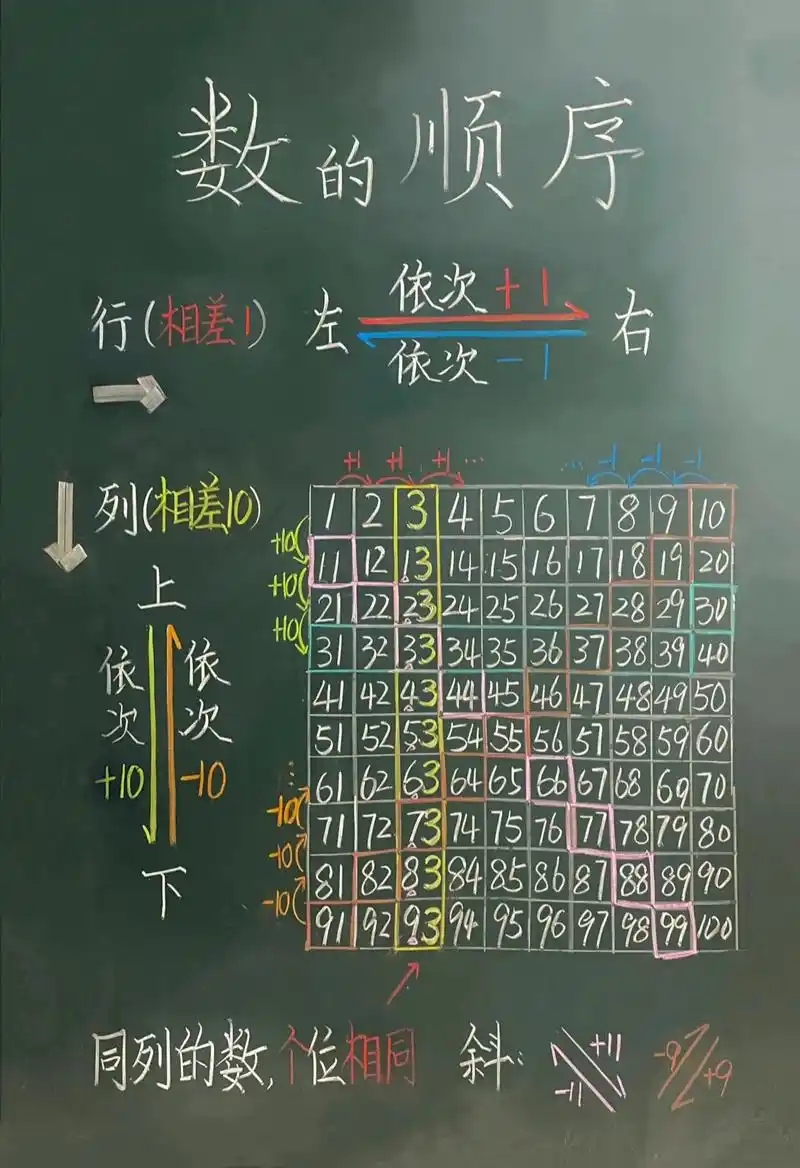 数的顺序
依次+1
行(相差1) 左 右
依次-1
+1 +1 +1 … … -1 -1 -1
列(相差10)
+10
+10
+10
上
依次+10
依次-10
下
⋮
-10
-10
-10
1 2 3 4 5 6 7 8 9 10
11 12 13 14 15 16 17 18 19 20
21 22 23 24 25 26 27 28 29 30
31 32 33 34 35 36 37 38 39 40
41 42 43 44 45 46 47 48 49 50
51 52 53 54 55 56 57 58 59 60
61 62 63 64 65 66 67 68 69 70
71 72 73 74 75 76 77 78 79 80
81 82 83 84 85 86 87 88 89 90
91 92 93 94 95 96 97 98 99 100
同列的数,个位相同 斜: +11 -11 -9 +9